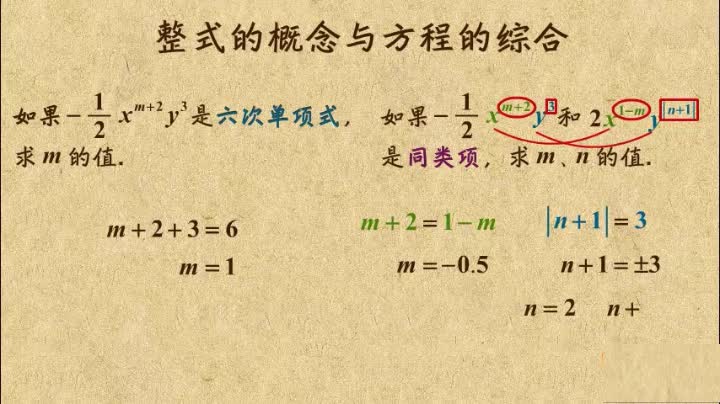 整式的概念与方程的综合
如果 -1/2 x^{m+2} y^3 是六次单项式，
求 m 的值.
m + 2 + 3 = 6
m = 1
如果 -1/2 x^{m+2} y^3 和 2x^{1-m} y^{|n+1|}
是同类项，求 m、n 的值.
m + 2 = 1 - m |n + 1| = 3
m = -0.5 n + 1 = ±3
n = 2 n +